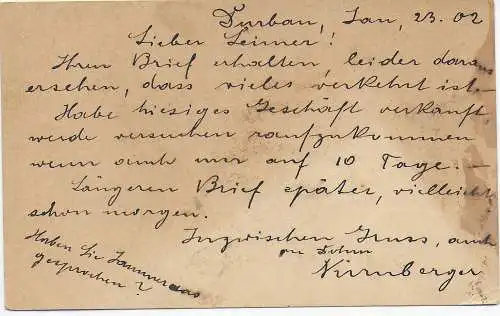 Durban, Jan, 23. 02
Lieber Leimer!
Ihren Brief erhalten, leider daraus
ersehen, dass vieles verkehrt ist. –
Habe hiesiges Geschäft verkauft
werde versuchen raufzukommen
wenn auch nur auf 10 Tage. –
Längeren Brief später, vielleicht
schon morgen.
Inzwischen Gruss, auch
an Sohn
Nürnberger
Haben Sie
gesprochen?